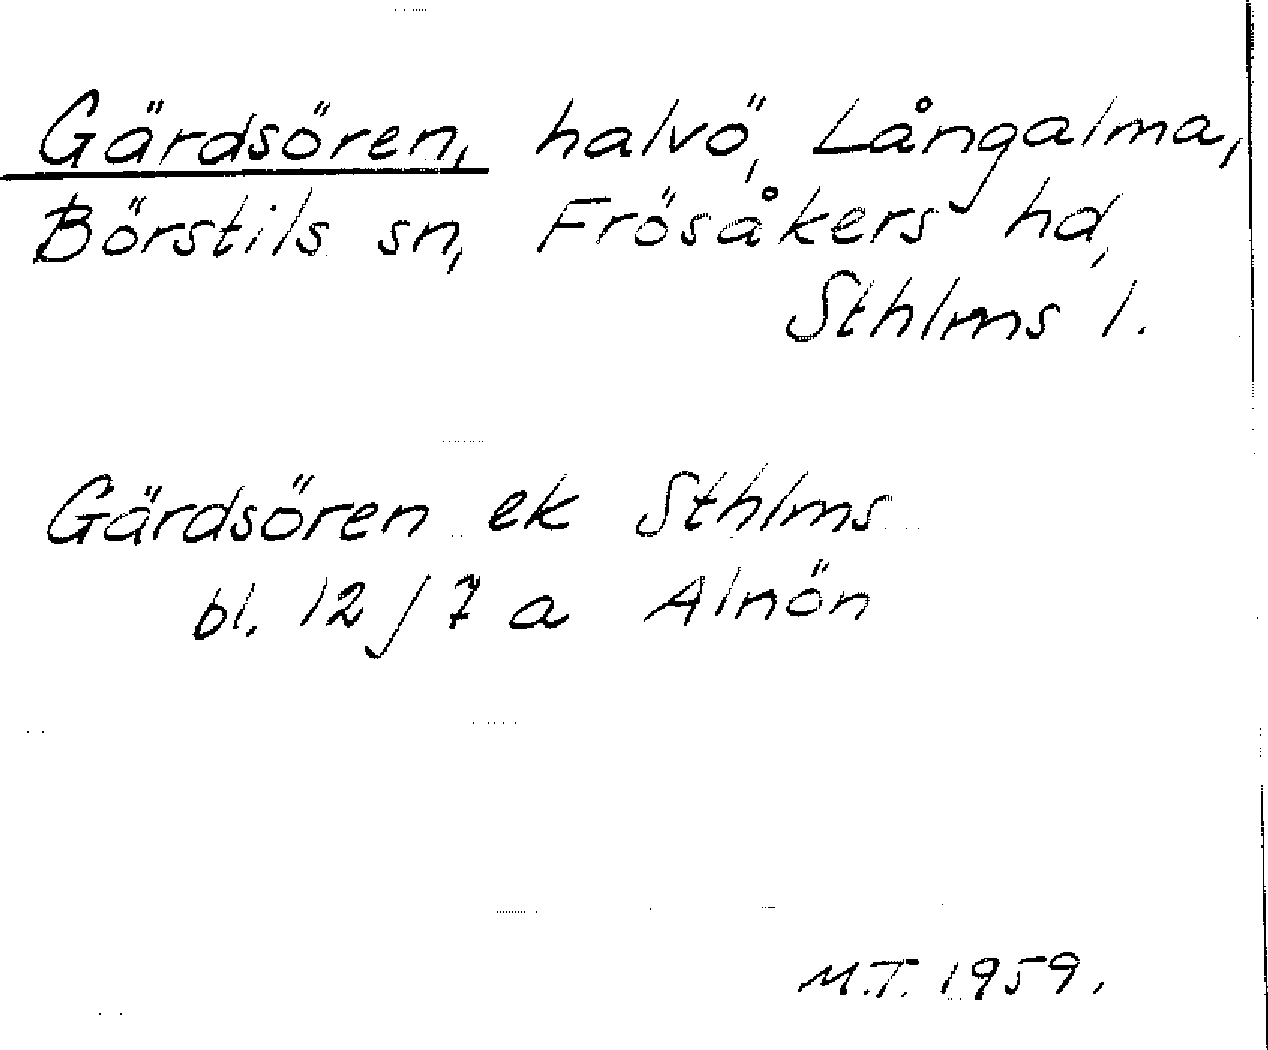 Gärdsören, halvö, Långalma,
Börstils sn, Frösåkers hd,
Sthlms l.
Gärdsören ek Sthlms
bl. 12 / 7 a Alnön
M.T. 1959.